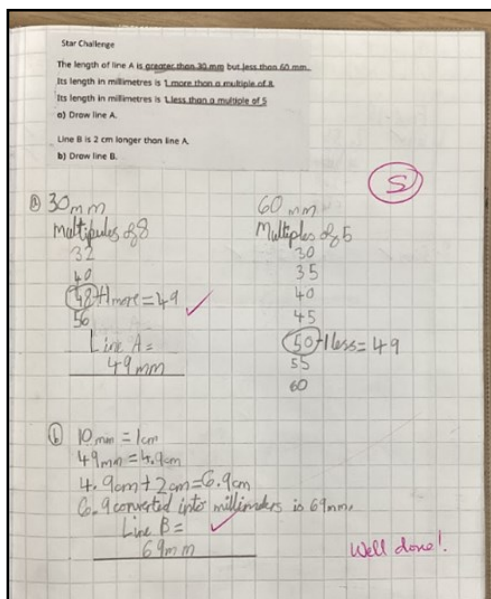 Star Challenge
The length of line A is greater than 30 mm but less than 60 mm.
Its length in millimetres is 1 more than a multiple of 8
Its length in millimetres is 1 less than a multiple of 5
a) Draw line A.
Line B is 2 cm longer than line A.
b) Draw line B.
S
a 30mm
Multipules of 8
32
40
48 +1 more = 49
56
Line A =
49mm
60 mm
Multiples of 5
30
35
40
45
50 -1 less = 49
55
60
b 10mm = 1cm
49mm = 4.9cm
4.9cm + 2cm = 6.9cm
6.9 converted into millimeters is 69mm.
Line B =
69mm
Well done!